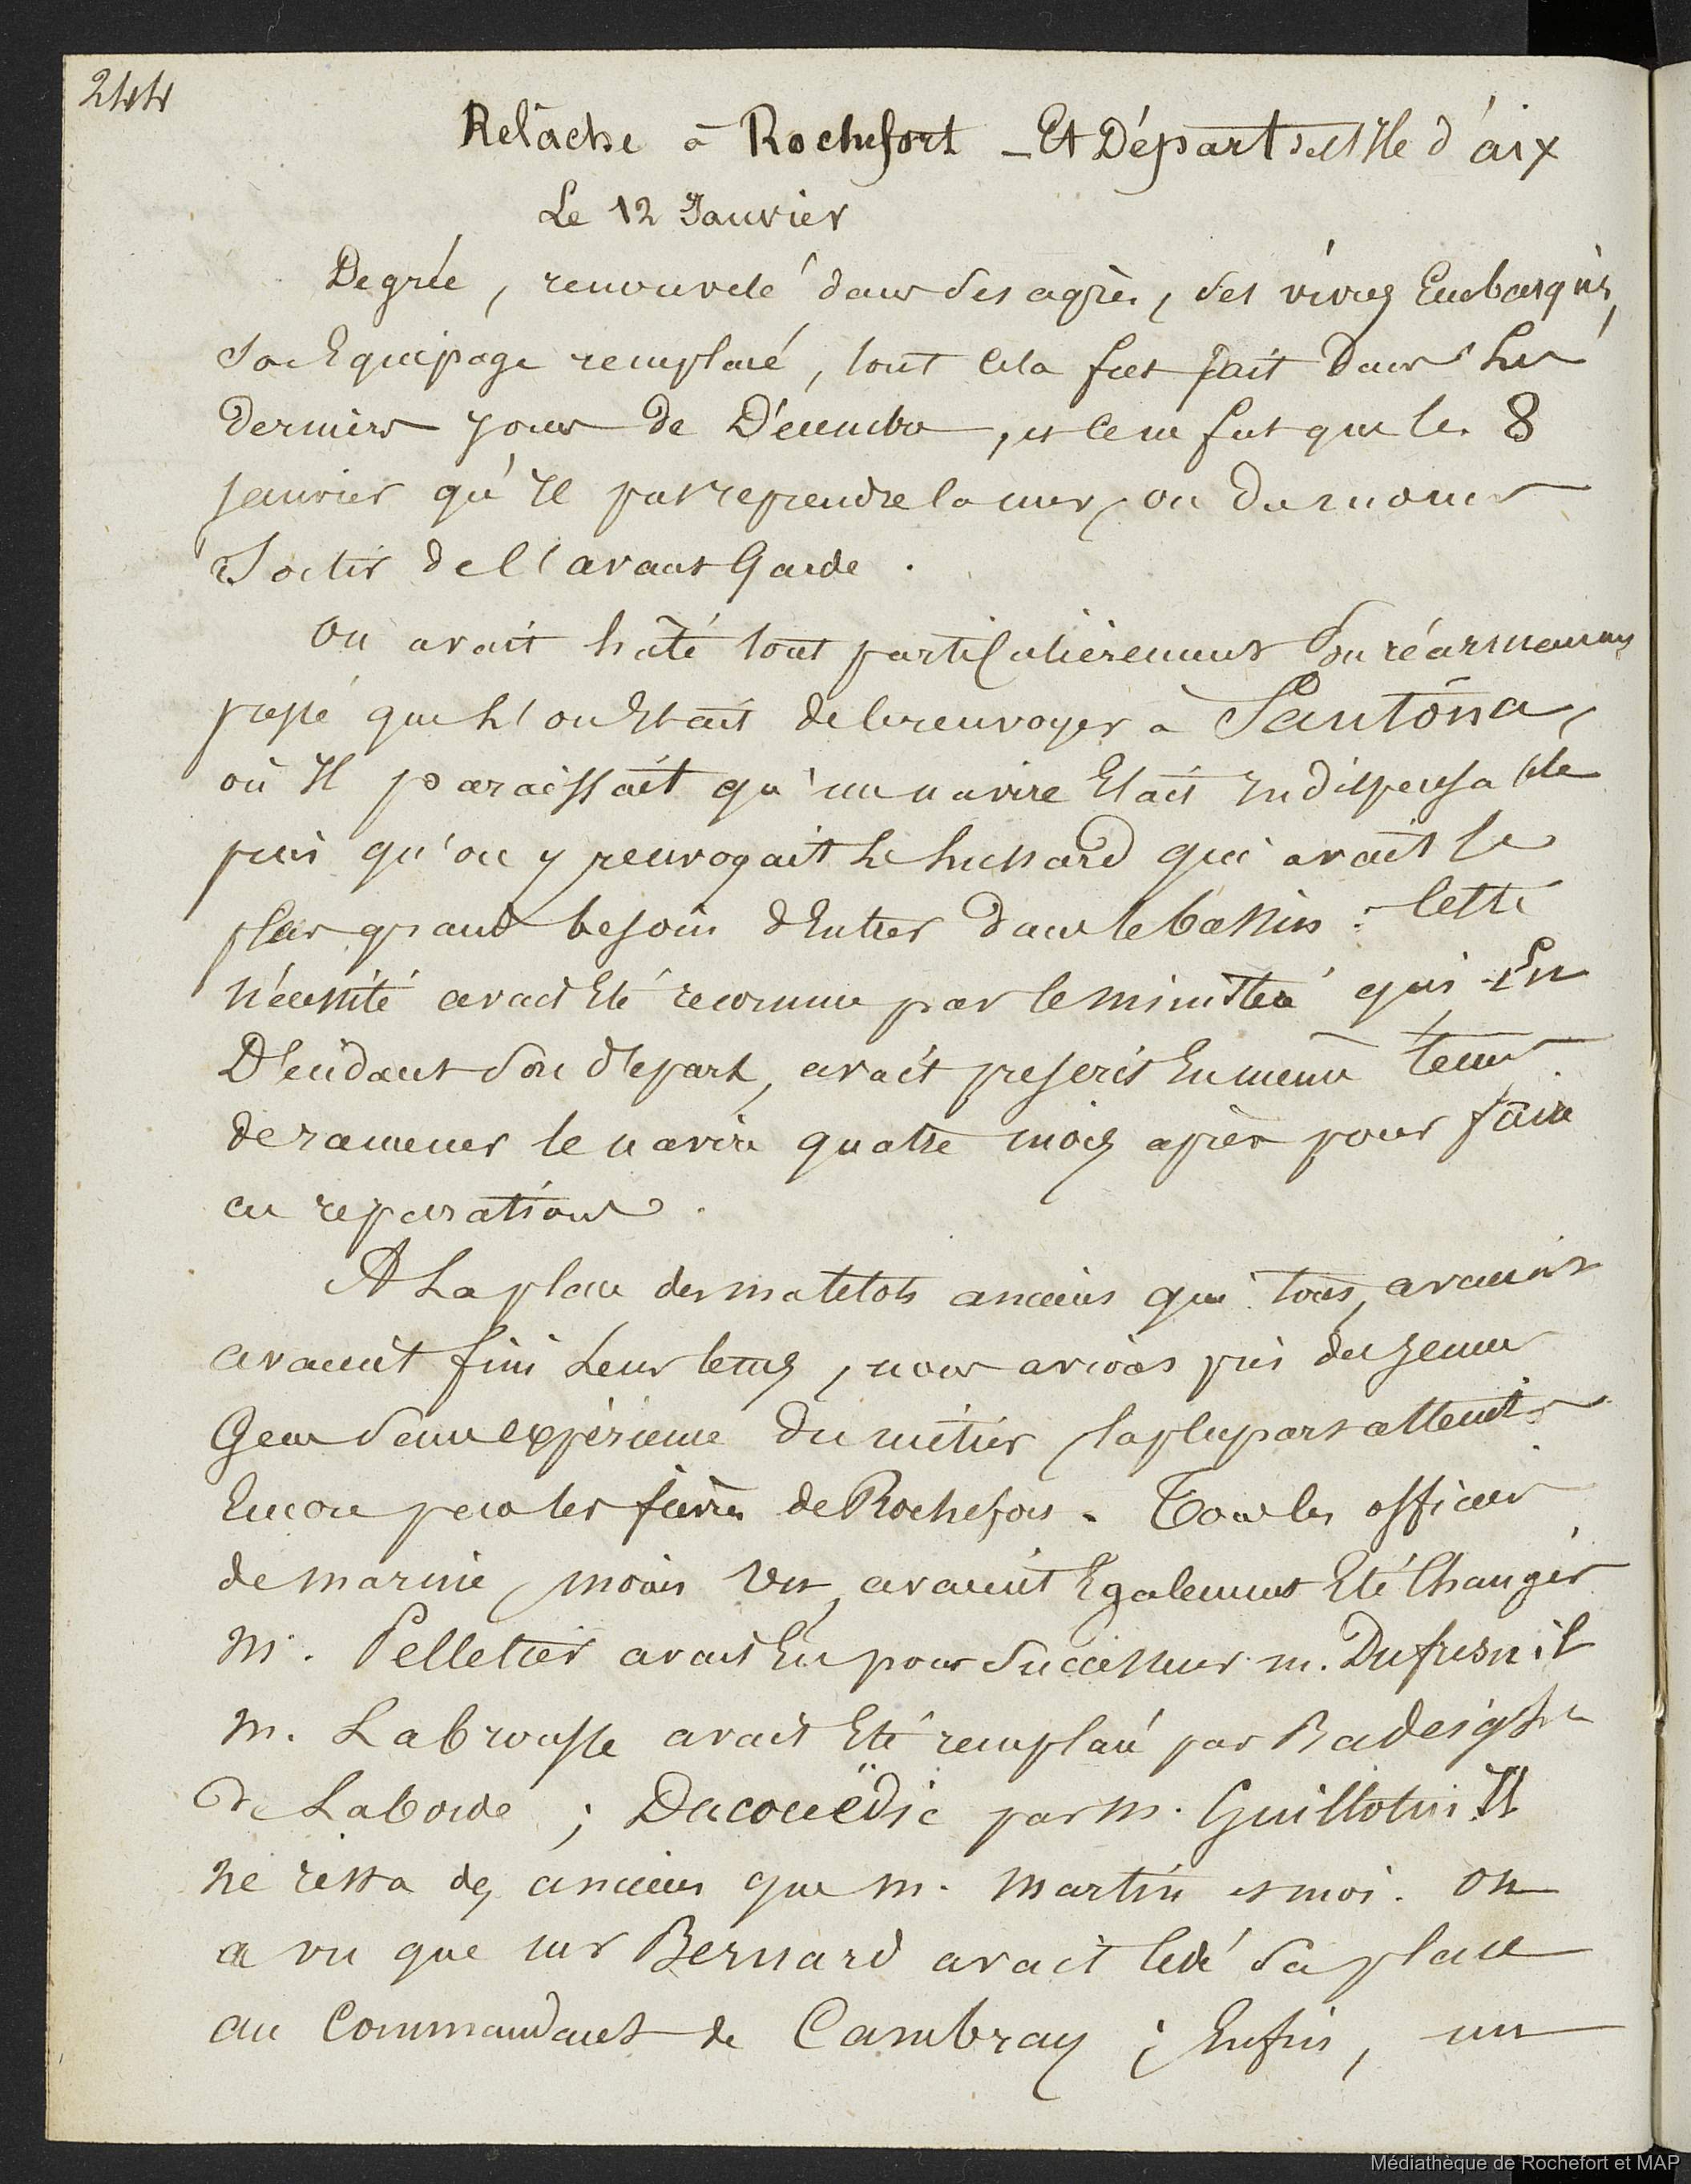 244
Relâche à Rochefort _ Et Départ de l'Ile d'aix
Le 12 Janvier
Degrée, renouvelé dans ses agrès, ses vivres Embarqués,
son Equipage remplacé, tout cela fut fait dans les
derniers jours de Décembre, et ce ne fut que le 8
janvier qu'Il put reprendre la mer, ou du moins
Sortir de l'avant Garde.
On avait hâté tout particulièrement son réarmement
pressé que l'on Etait de le renvoyer à Santôna,
où Il paraissait qu'un navire Etait Indispensable
puis qu'on y renvoyait le hussard qui avait le
plus grand besoin d'Entrer dans le bassin : Cette
nécessité avait Eté reconnue par le ministre qui En
Décidant son départ, avait prescrit En même tems
de ramener le navire quatre mois après pour faire
ces reparations.
A La place des matelots anciens qui tous, avaient
avaient fini leur tems, nous avions pris des jeunes
Gens sans expérience du métier, la plupart atteints
Encore par les fièvres de Rochefort. Tous les officiers
de marine, moins un, avaient Egalement Eté Changés
M. Pelletier avait Eu pour Successeur m. Dufresnil
M. Labrousse avait Eté remplacé par
de Laborde ; Ducouëdic par M. Guillotin. Il
ne resta des anciens que M. Martin et moi. On
a vu que mr Bernard avait cédé sa place
au Commandant de Cambray ; Enfin, un
Médiathèque de Rochefort et MAP